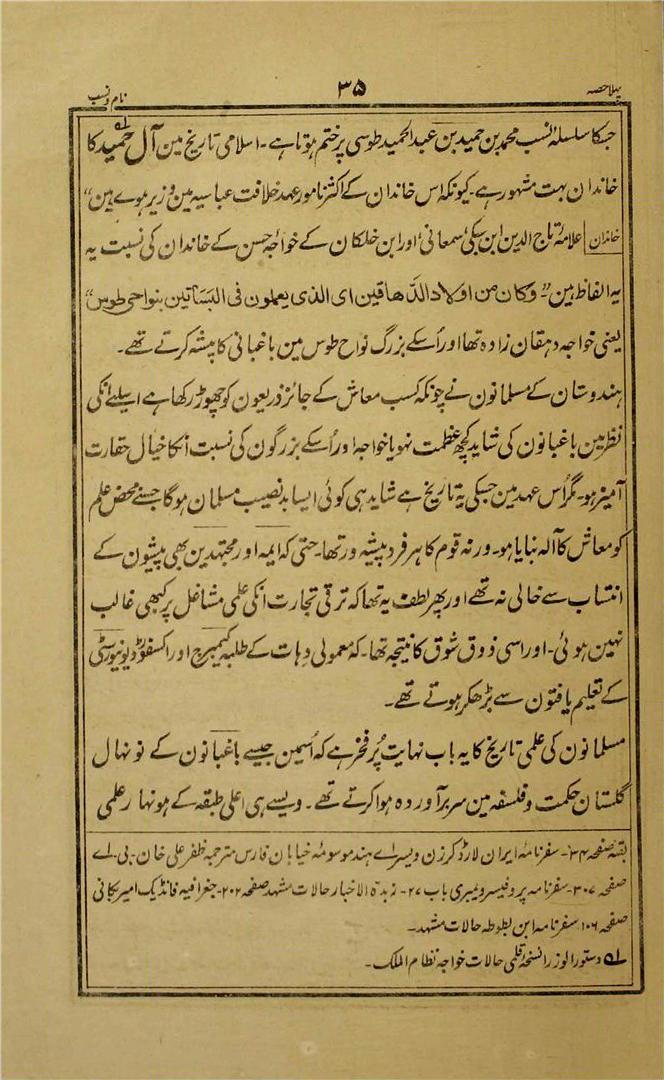 پہلا حصہ
۳۵
نام و نسب
جسکا سلسلہ نسب محمد بن حمید بن عبد الحمید طوسی پر ختم ہوتا ہے۔ اسلامی تاریخ مین آل حمید کا
خاندان بہت مشہور ہے۔ کیونکہ اس خاندان کے اکثر نامور عہد خلافت عباسیہ مین وزیر ہوے ہین"
خاندان علامہ تاج الدین ابن سبکی سمعانی اور ابن خلکان کے خواجہ حسن کے خاندان کی نسبت یہ
یہ الفاظ ہین "وکان من اولاد الدھاقین ای الذی یعملون فی البساتین بنواحی طوس"
یعنی خواجہ دہقان زادہ تھا اور اُسکے بزرگ نواح طوس مین باغبانی کا پیشہ کرتے تھے۔
ہندوستان کے مسلمانون نے چونکہ کسب معاش کے جائز ذریعون کو چھوڑ رکھا ہے اسلیے انکی
نظر مین باغبانون کی شاید کچھ عظمت نہو یا خواجہ اور اُسکے بزرگون کی نسبت انکا خیال حقارت
آمیز ہو۔ مگر اُس عہد مین جسکی یہ تاریخ ہے شاید ہی کوئی ایسا بدنصیب مسلمان ہوگا جسنے محض علم
کو معاش کا آلہ بنایا ہو۔ ورنہ قوم کا ہر فرد پیشہ ور تھا۔ حتی کہ ایمہ اور مجتہدین بھی پیشون کے
انتساب سے خالی نہ تھے اور پھر لطف یہ تھا کہ ترقی تجارت انکی علمی مشاغل پر کبھی غالب
نہین ہوئی۔ اور اسی ذوق شوق کا نتیجہ تھا۔ کہ معمولی دہات کے طلبہ کیمبرج اور اکسفورڈ یونیورسٹی
کے تعلیم یافتون سے بڑھکر ہوتے تھے۔
مسلمانون کی علمی تاریخ کا یہ باب نہایت پُر فخر ہے کہ اُسمین جیسے باغبانون کے نونہال
گلستان حکمت و فلسفہ مین سربرآوردہ ہوا کرتے تھے۔ ویسے ہی اعلی طبقہ کے ہونہار علمی
بقیہ صفحہ ۳۴۔ سفرنامہ ایران لارڈ کرزن ویسراے ہند موسومہ خیابان فارس مترجمہ ظفر علی خان۔ بی۔ اے
صفحہ ۳۰۷۔ سفرنامہ پروفیسر ویمبری باب ۲۷۔ زبدۃ الاخبار حالات مشہد صفحہ ۲۰۲۔ جغرافیہ فانڈیک امیریکانی
صفحہ ۱۰۶ سفرنامہ ابن بطوطہ حالات مشہد۔
لہ دستور الوزرا نسخہ قلمی حالات خواجہ نظام الملک۔